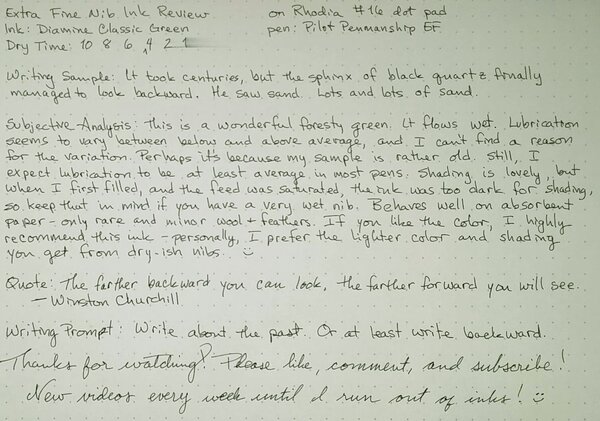 Extra Fine Nib Ink Review on Rhodia #16 dot pad
Ink: Diamine Classic Green pen: Pilot Penmanship EF
Dry Time: 10 8 6 4 2 1
Writing Sample: It took centuries, but the sphinx of black quartz finally
managed to look backward. He saw sand. Lots and lots of sand.
Subjective Analysis: This is a wonderful foresty green. It flows wet. Lubrication
seems to vary between below and above average, and I can't find a reason
for the variation. Perhaps it's because my sample is rather old. Still, I
expect lubrication to be at least average in most pens. Shading is lovely, but
when I first filled, and the feed was saturated, the ink was too dark for shading,
so keep that in mind if you have a very wet nib. Behaves well on absorbent
paper - only rare and minor wool + feathers. If you like the color, I highly
recommend this ink - personally, I prefer the lighter color and shading
you get from dry-ish nibs. :)
Quote: The farther backward you can look, the farther forward you will see.
- Winston Churchill
Writing Prompt: Write about the past. Or at least write backward.
Thanks for watching! Please like, comment, and subscribe!
New videos every week until I run out of inks! :)